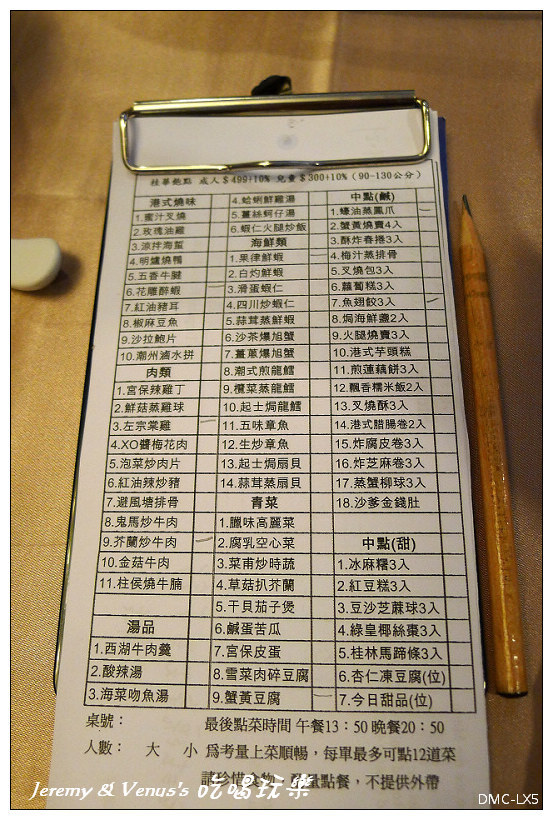 桂華飽點 成人$499+10% 兒童$300+10%(90-130公分)
港式燒味
1.蜜汁叉燒
2.玫瑰油雞
3.涼拌海蜇
4.明爐燒鴨
5.五香牛腱
6.花雕醉蝦
7.紅油豬耳
8.椒麻豆魚
9.沙拉鮑片
10.潮州滷水拼
肉類
1.宮保辣雞丁
2.鮮菇蒸雞球
3.左宗棠雞
4.XO醬梅花肉
5.泡菜炒肉片
6.紅油辣炒豬
7.避風塘排骨
8.鬼馬炒牛肉
9.芥蘭炒牛肉
10.金菇牛肉
11.柱侯燒牛腩
湯品
1.西湖牛肉羹
2.酸辣湯
3.海菜吻魚湯
4.蛤蜊鮮雞湯
5.薑絲蚵仔湯
6.蝦仁火腿炒飯
海鮮類
1.果律鮮蝦
2.白灼鮮蝦
3.滑蛋蝦仁
4.四川炒蝦仁
5.蒜茸蒸鮮蝦
6.沙茶爆旭蟹
7.薑蔥爆旭蟹
8.潮式煎龍鱈
9.欖菜蒸龍鱈
10.起士焗龍鱈
11.五味章魚
12.生炒章魚
13.起士焗扇貝
14.蒜茸蒸扇貝
青菜
1.臘味高麗菜
2.腐乳空心菜
3.菜甫炒時蔬
4.草菇扒芥蘭
5.干貝茄子煲
6.鹹蛋苦瓜
7.宮保皮蛋
8.雪菜肉碎豆腐
9.蟹黃豆腐
中點(鹹)
1.蠔油蒸鳳爪
2.蟹黃燒賣4入
3.酥炸春捲3入
4.梅汁蒸排骨
5.叉燒包3入
6.蘿蔔糕3入
7.魚翅餃3入
8.焗海鮮盞2入
9.火腿燒賣3入
10.港式芋頭糕
11.煎蓮藕餅3入
12.飄香糯米飯2入
13.叉燒酥3入
14.港式腊腸卷2入
15.炸腐皮卷3入
16.炸芝麻卷3入
17.蒸蟹柳球3入
18.沙爹金錢肚
中點(甜)
1.冰麻糬3入
2.紅豆糕3入
3.豆沙芝蔴球3入
4.綠皇椰絲棗3入
5.桂林馬蹄條3入
6.杏仁凍豆腐(位)
7.今日甜品(位)
桌號:
最後點菜時間 午餐13:50 晚餐20:50
人數: 大 小 為考量上菜順暢,每單最多可點12道菜
點餐,不提供外帶
Jeremy & Venus's 吃喝玩樂
DMC-LX5